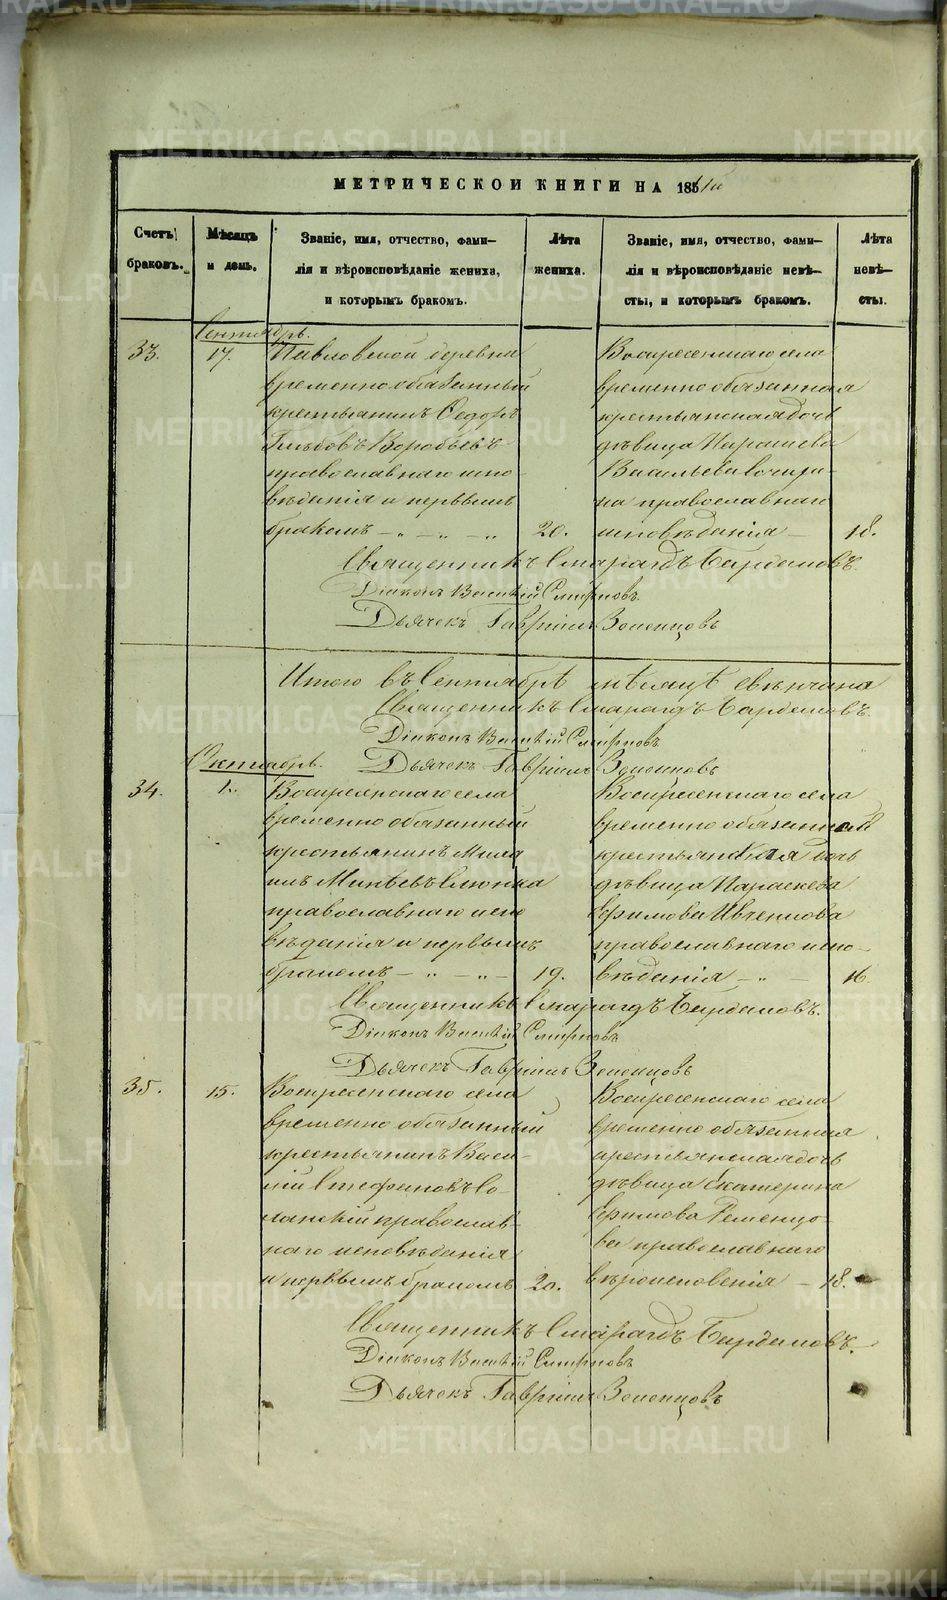 МЕТРИЧЕСКОЙ КНИГИ НА 186
Счетъ браковъ.
Мѣсяцъ и день.
Званіе, имя, отчество, фами-
лія и вѣроисповѣданіе жениха,
и которымъ бракомъ.
Лѣта жениха.
Званіе, имя, отчество, фами-
лія и вѣроисповѣданіе невѣ-
сты, и которымъ бракомъ.
Лѣта невѣ-
сты.
Сентябрь.
33.
17.
Павловской деревни
временно обязанный
крестьянинъ Ѳедоръ
Глѣбовъ Воробьевъ
православнаго испо
вѣданія и первымъ
бракомъ
20.
Воскресенскаго села
временно обязанная
крестьянская дочь
дѣвица
Васильева
на православнаго
исповѣданія
18.
Священникъ Смарагдъ
Діаконъ Василій Смирновъ
Дьячекъ Гавріилъ
Итого въ Сентябрѣ мѣсяцѣ свѣнчано
Священникъ Смарагдъ
Діаконъ Василій Смирновъ
Дьячекъ Гавріилъ
Октябрь.
34.
1.
Воскресенскаго села
временно обязанный
крестьянинъ Миха
илъ
православнаго испо
вѣданія и первымъ
бракомъ
19.
Воскресенскаго села
временно обязанной
крестьянская дочь
дѣвица Параскева
Ефимова
православнаго испо-
вѣданія
16.
Священникъ Смарагдъ
Діаконъ Василій Смирновъ
Дьячекъ Гавріилъ
35.
15.
Воскресенскаго села
временно обязанный
крестьянинъ Васи-
лій Стефановъ
православ-
наго исповѣданія
и первымъ бракомъ
20.
Воскресенскаго села
временно обязанная
крестьянская дочь
дѣвица Екатерина
Ефимова Ременцо-
ва православнаго
18.
Священникъ Смарагдъ
Діаконъ Василій Смирновъ
Дьячекъ Гавріилъ
METRIKI.GASO-URAL.RU